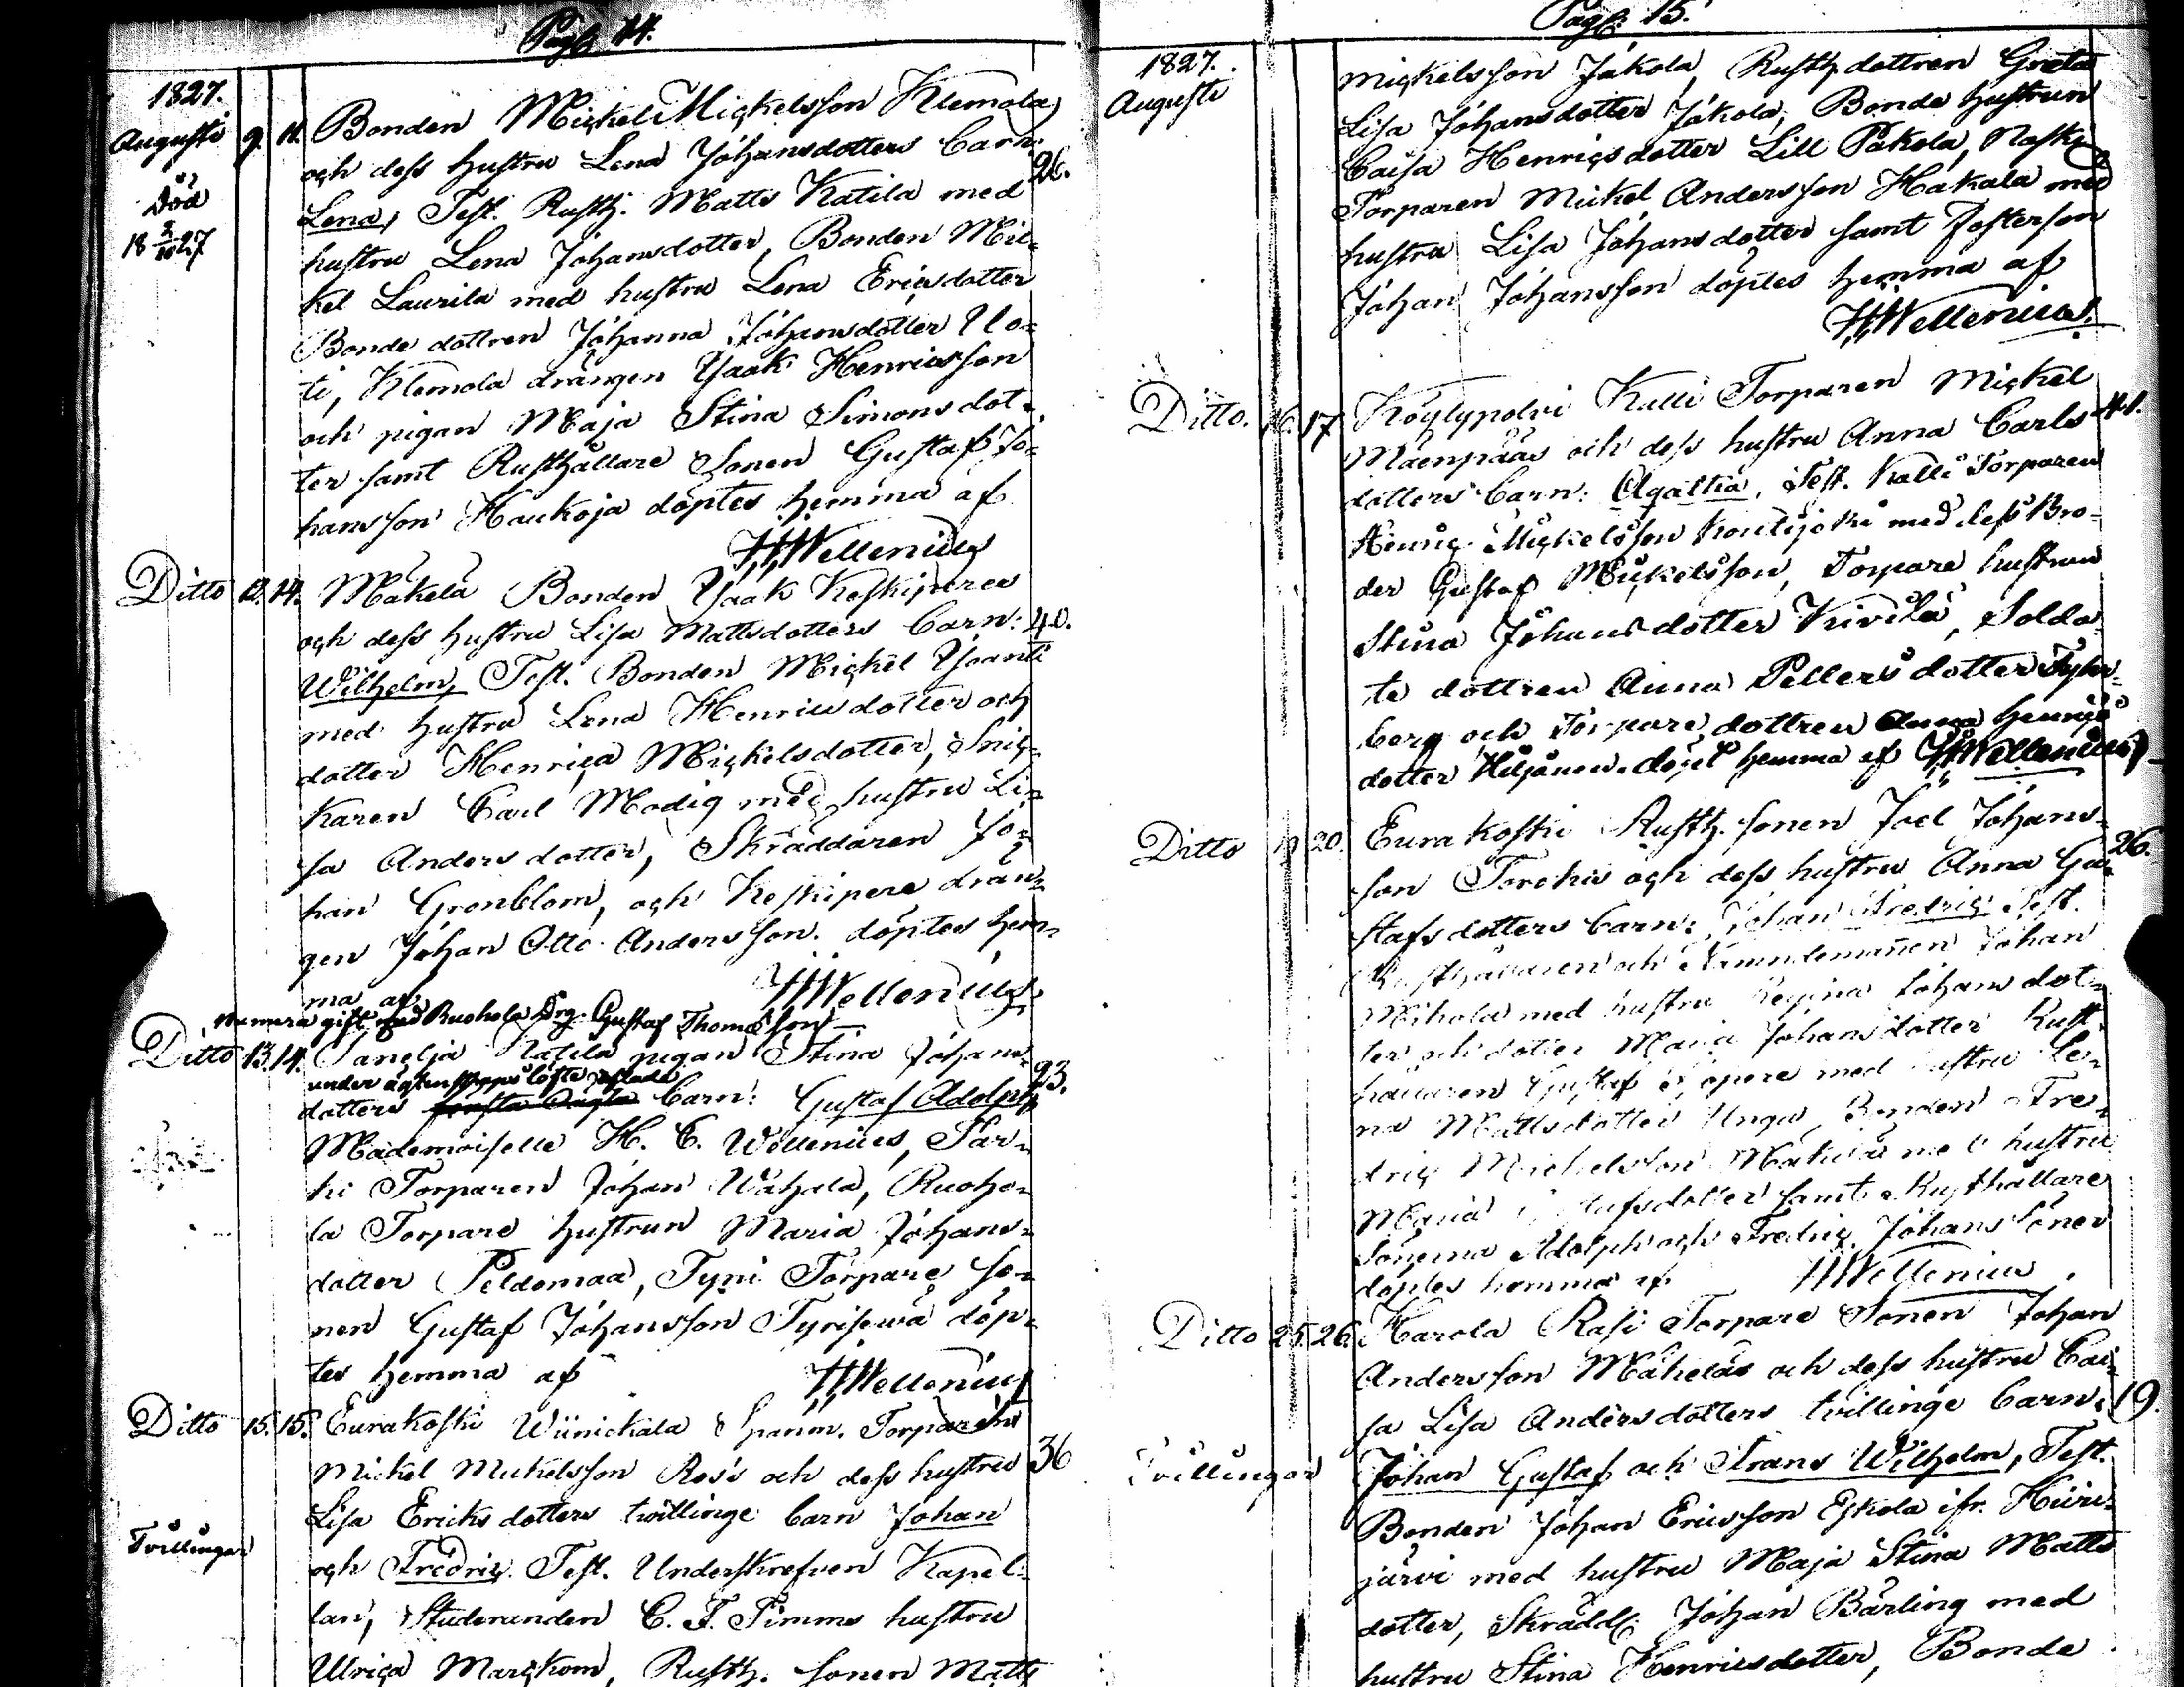 Pag: 14.
1827.
Augusti 9. 11. Bonden Mickel Mickelsson Klemola
och dess hustru Lena Johansdotters Barn: 26.
Död Lena, Test. Rusth. Matts Katila med
hustru Lena Johansdotter, Bonden Mic-
kel Laurila med hustru Lena Ericsdotter
Bonde dottren Johanna Johansdotter Uo-
ti, Klemola drängen Isaak Henricsson
och pigan Maja Stina Simonsdot-
ter samt Rusthållare Sonen Gustaf Jo-
hansson Haukoja döptes hemma af
HWellenius
Ditto 12. 14. Mäkelä Bonden Isaak Keskiperes
och dess hustru Lisa Mattsdotters Barn: 40.
Wilhelm, Test. Bonden Mickel
med hustru Lena Henricsdotter och
dotter Henrica Mickelsdotter, Snic-
karen Carl Modig med hustru Li-
sa Andersdotter, Skräddaren Jo-
han Gronblom, och Keskipere drän-
gen Johan Otto Andersson. döptes hem-
ma af HWellenius
gift med Ruohola Drg. Gustaf Thomasson
Ditto 13. 14. Katila pigan Stina Johans-
under äktenskaps löfte aflade
dotters Barn: Gustaf Adolph 93.
Mademoiselle H. C. Wellenius, Sär-
ki Torparen Johan Wähälä, Ruoho-
la Torpare hustrun Maria Johans-
dotter Peldomaa, Tyni Torpare So-
nen Gustaf Johansson döp-
tes hemma af HWellenius
Ditto 15. 15. Eurakoski Wiinickala Spanm. Torparens
Mickel Mickelsson och dess hustru 36
Lisa Ericksdotters twillinge barn Johan
Tvillingar och Fredric. Test. Underskrefven Kapel-
lan, Studeranden C. F. Timms hustru
Ulrica Rusth. Sonen Matts
Pag: 15.
1827.
Augusti Mickelsson Jakola, Rusth. dottren Greta
Lisa Johansdotter Jakola, Bonde hustrun
Caisa Henricsdotter Lill Pakola,
Torparen Mickel Andersson Hakala med
hustru Lisa Johansdotter samt fosterson
Johan Johansson döptes hemma af
HWellenius.
Ditto. 16. 17 Köylypolvi Kalli Torparen Mickel
Mäenpääs och dess hustru Anna Carls 41.
dotters Barn: Agatha, Test. Kalli Torparen
Henric Mickelsson med dess Bro-
der Gustaf Mickelsson, Torpare hustrun
Stina Johansdotter Kivelä, Solda-
te dottren Anna Pettersdotter
berg och Torpare dottren Anna Henrics
dotter döpt hemma af HWellenius
Ditto 20. Eurakoski Rusth. sonen Joel Johans-
son Torckis och dess hustru Anna Gu- 26.
stafsdotters Barn: Johan Fredric Test.
Rusthållaren och Nämndemannen Johan
Mikola med hustru Regina Johansdot-
ter och dotter Maria Johansdotter Rust-
hållaren Gustaf med hustru Le-
na Mattsdotter Bonden Fre-
dric Michelsson Mäkelä med hustru
Maria samt Rusthållare
Sönerna Adolph och Fredric Johans Söner
döptes hemma af HWellenius
Ditto 25. 26. Karola Rasi Torpare Sonen Johan
Andersson Mäkeläs och dess hustru Cai-
sa Lisa Andersdotters tvillinge Barn: 19.
Tvillingar Johan Gustaf och Frans Wilhelm, Test.
Bonden Johan Ericsson Eskola ifr.
järvi med hustru Maja Stina Matts
dotter, Skrädd. Johan Bärling med
hustru Stina Henricsdotter, Bonde